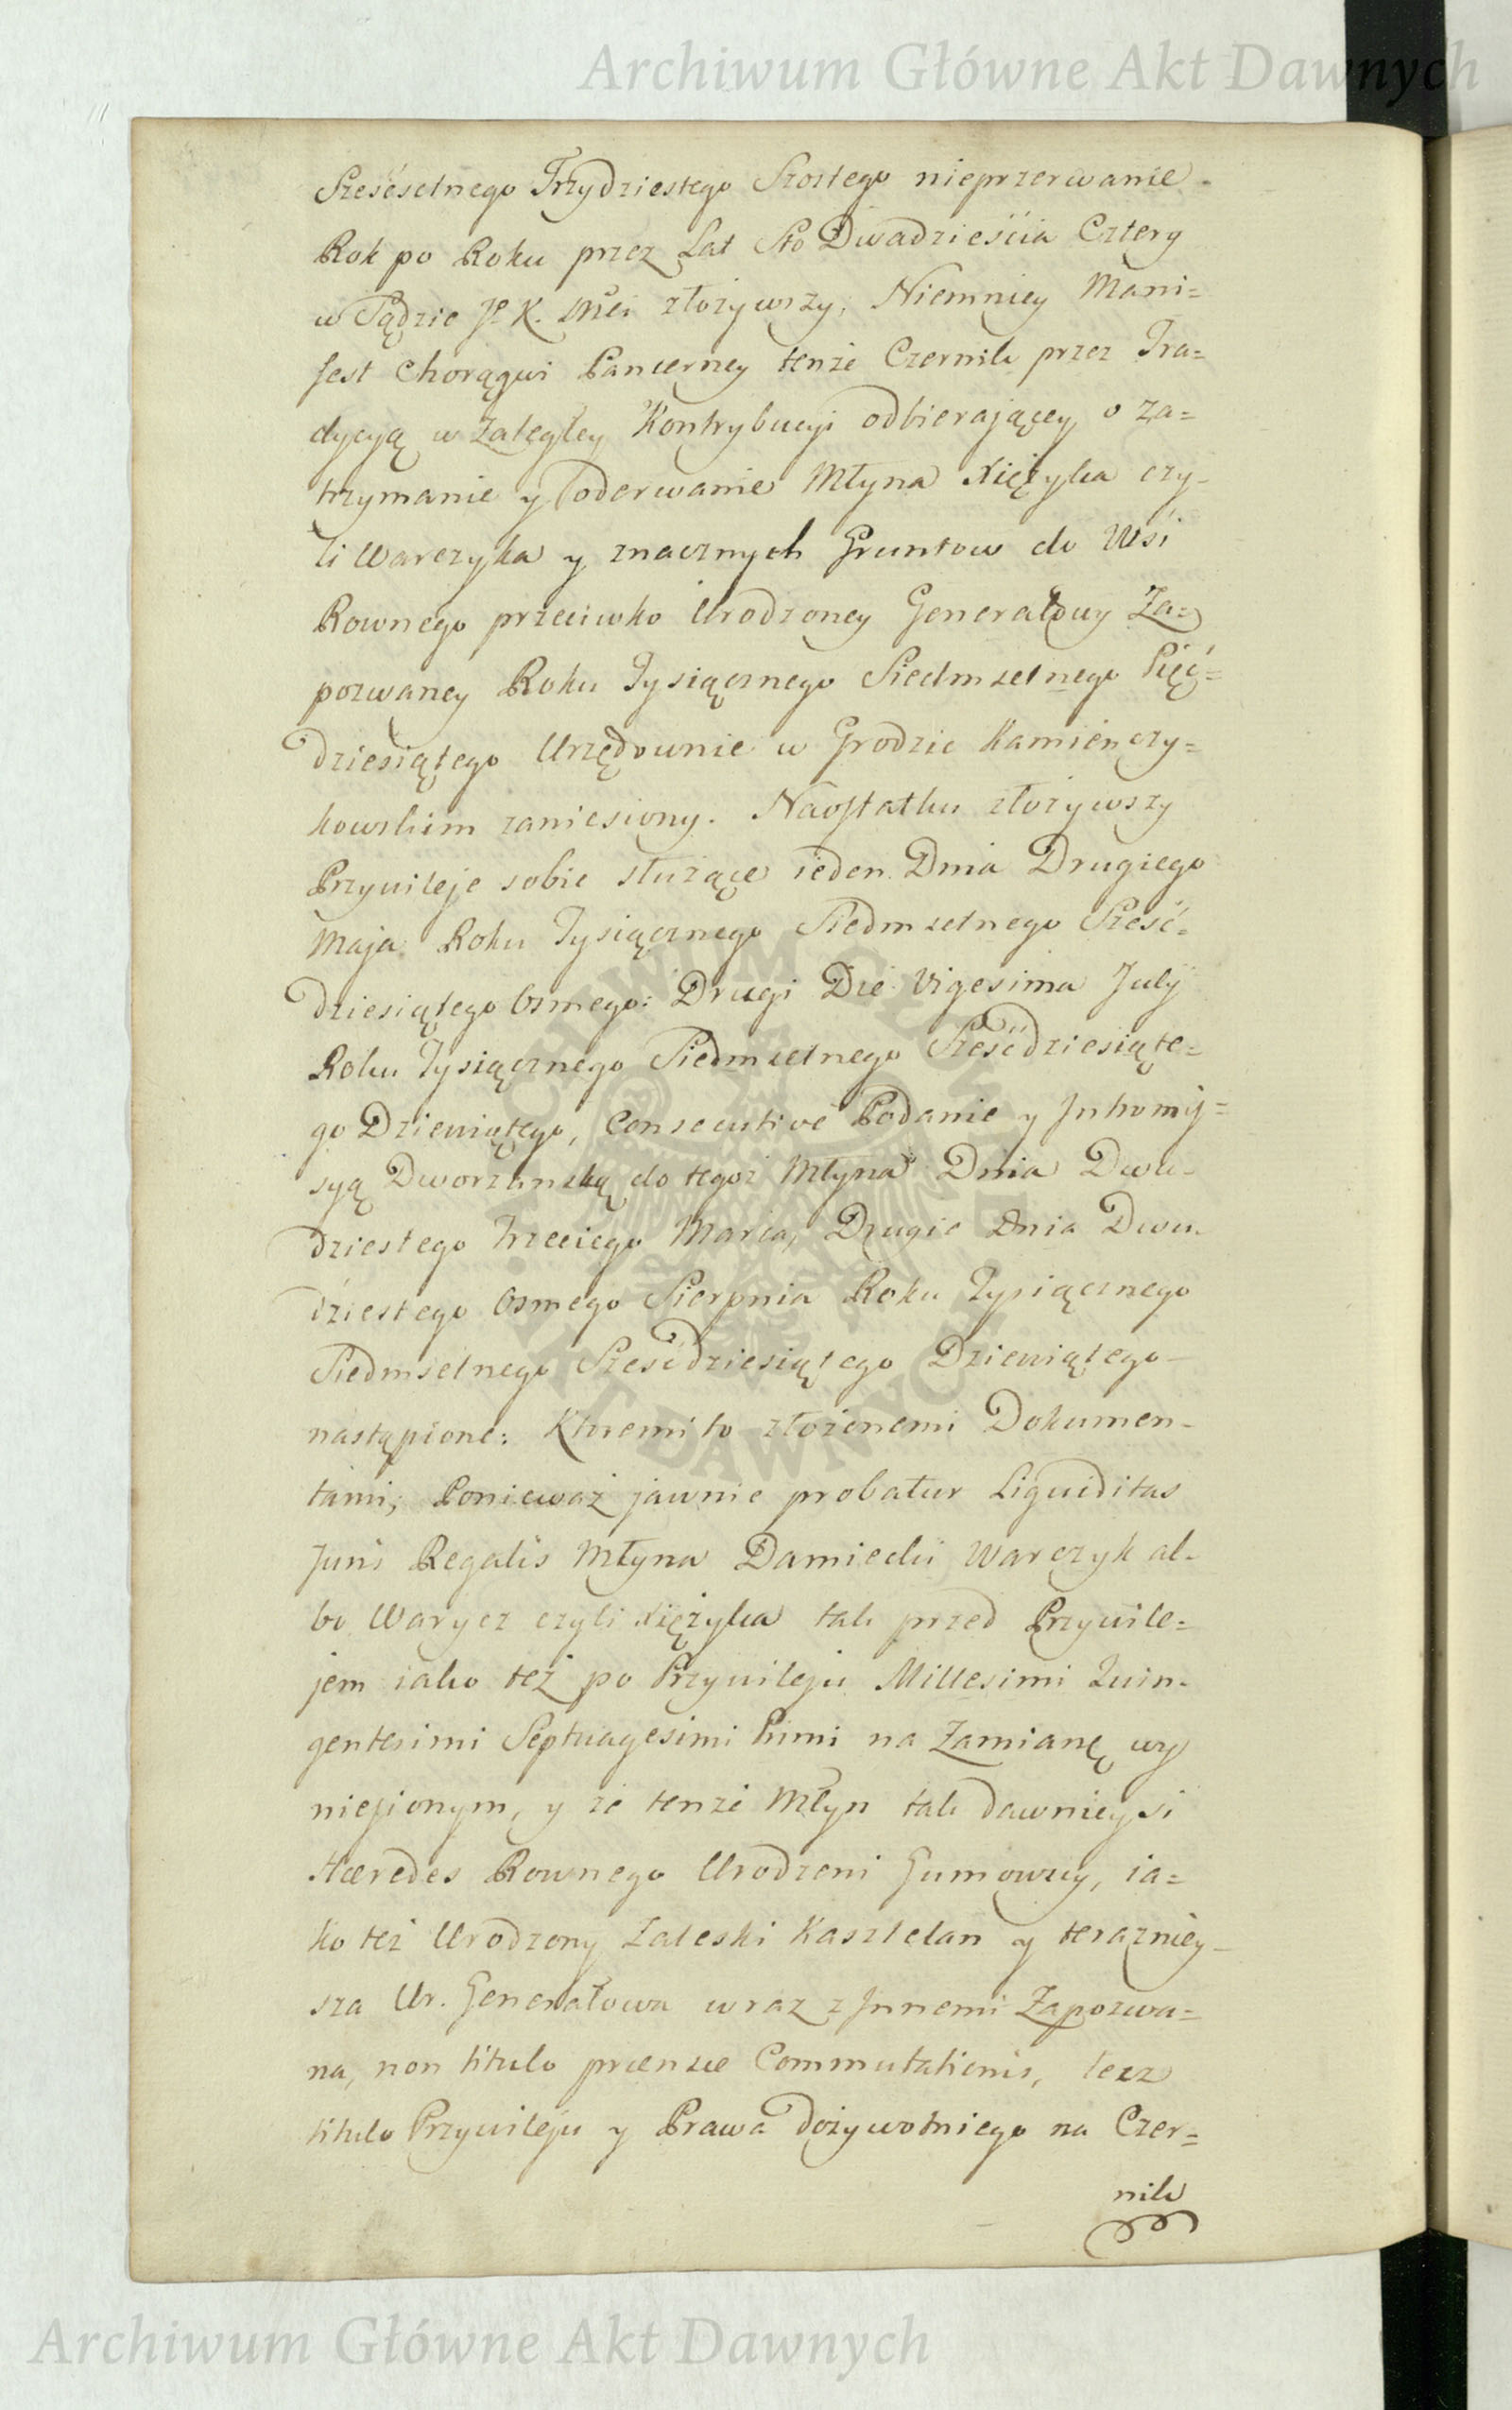 Archiwum Główne Akt Dawnych
Sześćsetnego Trzydziestego Szostego nieprzerwanie
Rok po Roku przez Lat Sto Dwadzieścia Cztery
w Sądzie J. K. Mci złożywszy, Niemniey Mani=
fest Chorągwi Pancerney tenże Czernik przez Tra=
dycyą w Zaległey Kontrybucyi odbierającey o za=
trzymanie y oderwanie Młyna Xiężyka czy-
li Warczyka y znacznych Gruntow do Wsi
Rownego przeciwko Urodzoney Generałowy Za=
pozwaney Roku Tysiącznego Siedmsetnego Pięć=
dziesiątego Urzędownie w Grodzie Kamienczy=
kowskim zaniesiony. Naostatku złożywszy
Przywileje sobie służące ieden Dnia Drugiego
Maja Roku Tysiącznego Siedmsetnego Sześć=
dziesiątego Osmego: Drugi Die Vigesima July
Roku Tysiącznego Siedmsetnego Sześćdziesiąte=
go Dziewiątego, Consecutive Podanie y Intromis=
syą Dworzanską do tegoż Młyna Dnia Dwu-
dziestego Trzeciego Marca, Drugie Dnia Dwu-
dziestego Osmego Sierpnia Roku Tysiącznego
Siedmsetnego Sześćdziesiątego Dziewiątego-
nastąpione: Któremi to złożonemi Dokumen-
tami, Ponieważ jawnie probatur Liquiditas
Juris Regalis Młyna Damiecki Warczyk al-
bo Warycz czyli Xiężyka tak przed Przywile=
jem iako też po Przywileju Millesimi Quin-
gentesimi Septuagesimi Primi na Zamianę wy
niesionym, y że tenże Młyn tak dawnieysi
Hæredes Rownego Urodzeni Gumowscy, ia=
ko też Urodzony Zaleski Kasztelan y teraźniey-
sza Ur. Generałowa wraz z Innemi Zapozwa=
na, non titulo præensæ Commutationis, lecz
titulo Przywileju y Prawa Dożywotniego na Czer=
nik
Archiwum Główne Akt Dawnych